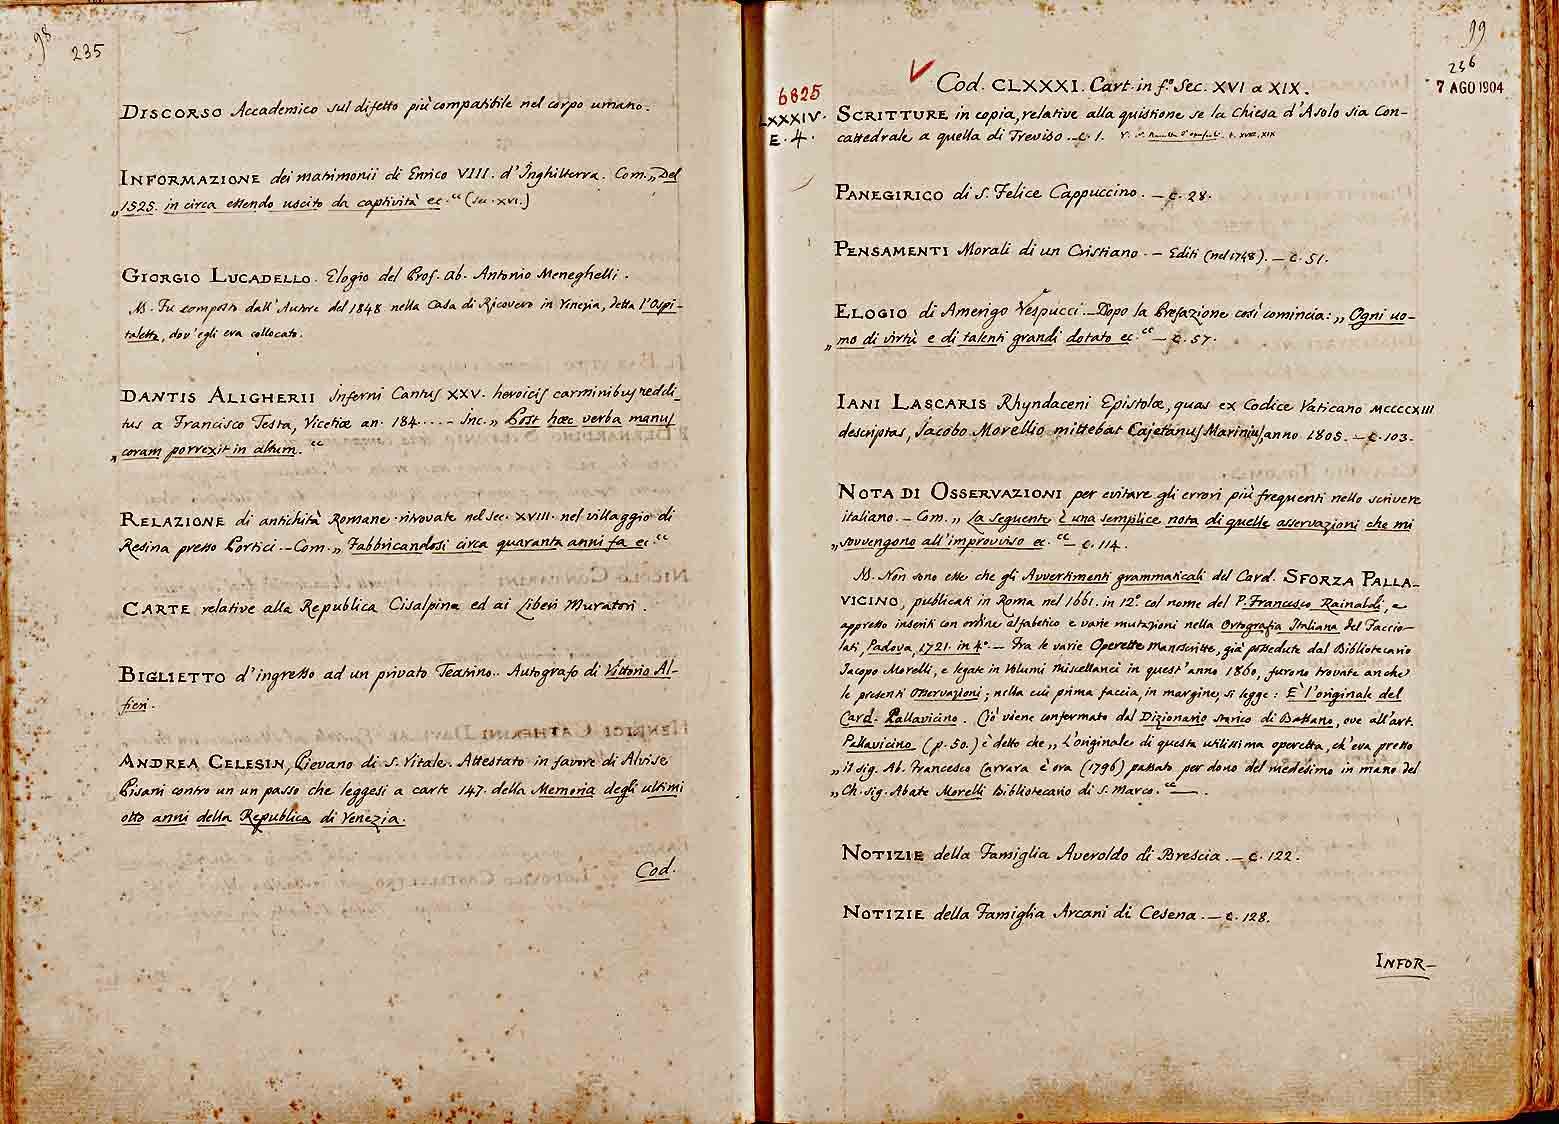 98
235
DISCORSO Accademico sul difetto più compatibile nel corpo umano.
INFORMAZIONE dei matrimonii di Enrico VIII. d'Inghilterra. Com. „Del
„1525. in circa essendo uscito da captività ec.“ (sec. XVI.)
GIORGIO LUCADELLO. Elogio del Prof. Ab. Antonio Meneghelli.
N. Fu composto dall'Autore del 1848 nella Casa di Ricovero in Venezia, detta l'Ospi-
taletto, dov'egli era collocato.
DANTIS ALIGHERII Inferni Cantus XXV. heroicis carminibus reddi-
tus a Francisco Testa, Vicetiæ an. 184.... - Inc. „Post hæc verba manus
„coram porrexit in altum.“
RELAZIONE di antichità Romane ritrovate nel sec. XVIII. nel villaggio di
Resina presso Portici. - Com. „Fabbricandosi circa quaranta anni fa ec.“
CARTE relative alla Republica Cisalpina ed ai Liberi Muratori.
BIGLIETTO d'ingresso ad un privato Teatino.. Autografo di Vittorio Al-
fieri.
ANDREA CELESIN, Pievano di S. Vitale. Attestato in favore di Alvise
Pisani contro un un passo che leggesi a carte 147. della Memoria degli ultimi
otto anni della Republica di Venezia.
Cod.
99
236
7 AGO 1904
V
6825
LXXXIV.
E. 4.
Cod. CLXXXI. Cart. in f.º Sec. XVI a XIX.
SCRITTURE in copia, relative alla quistione se la Chiesa d'Asolo sia Con-
cattedrale a quella di Treviso. - c. 1.
PANEGIRICO di S. Felice Cappuccino. - c. 28.
PENSAMENTI Morali di un Cristiano. - Editi (nel 1748). - c. 51.
ELOGIO di Amerigo Vespucci. - Dopo la Prefazione così comincia: „Ogni uo-
„mo di virtù e di talenti grandi dotato ec.“ - c. 57.
IANI LASCARIS Rhyndaceni Epistolæ, quas ex Codice Vaticano MCCCCXIII
descriptas, Jacobo Morellio mittebat Cajetanus Marinius, anno 1805. - c. 103.
NOTA DI OSSERVAZIONI per evitare gli errori più frequenti nello scrivere
italiano. - Com. „La seguente è una semplice nota di quelle osservazioni che mi
„sovvengono all'improvviso ec.“ - c. 114.
N. Non sono esse che gli Avvertimenti grammaticali del Card. SFORZA PALLA-
VICINO, publicati in Roma nel 1661. in 12º col nome del P. Francesco Rainaldi, e
appresso inseriti con ordine alfabetico e varie mutazioni nella Ortografia Italiana del Faccio-
lati, Padova, 1721. in 4º - Fra le varie Operette manoscritte, già possedute dal Bibliotecario
Jacopo Morelli, e legate in Volumi miscellanei in quest'anno 1860, furono trovate anche
le presenti Osservazioni; nella cui prima faccia, in margine, si legge: È l'originale del
Card. Pallavicino. Ciò viene confermato dal Dizionario storico di Bassano, ove all'art.
Pallavicino (p. 50.) è detto che „L'originale di questa utilissima operetta, ch'era presso
„il sig. Ab. Francesco Carrara è ora (1796) passato per dono del medesimo in mano del
„Ch. sig. Abate Morelli Bibliotecario di S. Marco.“ - .
NOTIZIE della Famiglia Averoldo di Brescia. - c. 122.
NOTIZIE della Famiglia Arcani di Cesena. - c. 128.
INFOR-